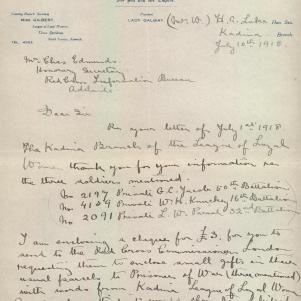 For God and the Empire.
Country Branch Secretary
MISS GILBERT
League of Loyal Women
President
LADY GALWAY
(Mrs. W.) H. C. Luke Hon. Sec.
Kadina Branch
July 10th 1918.
Mr. Chas Edmunds
Honorary Secretary
Red Cross Information Bureau
Adelaide
Dear Sir
In your letter of July 1st 1918
The Kadina Branch of the League of Loyal
Women thank you for your information re
the three soldiers mentioned.
No 2197 Private G. C. Jacobs 50th Battalion
No 4109 Private W. H. 16th Battalion
No 2091 Private L. W. 32nd Battalion
I am enclosing a cheque for £3. for you to
send to the Red Cross Commission London
requesting them to enclose small gifts in three
usual parcels to Prisoners of War (three mentioned)
with cards from Kadina League of Loyal Women